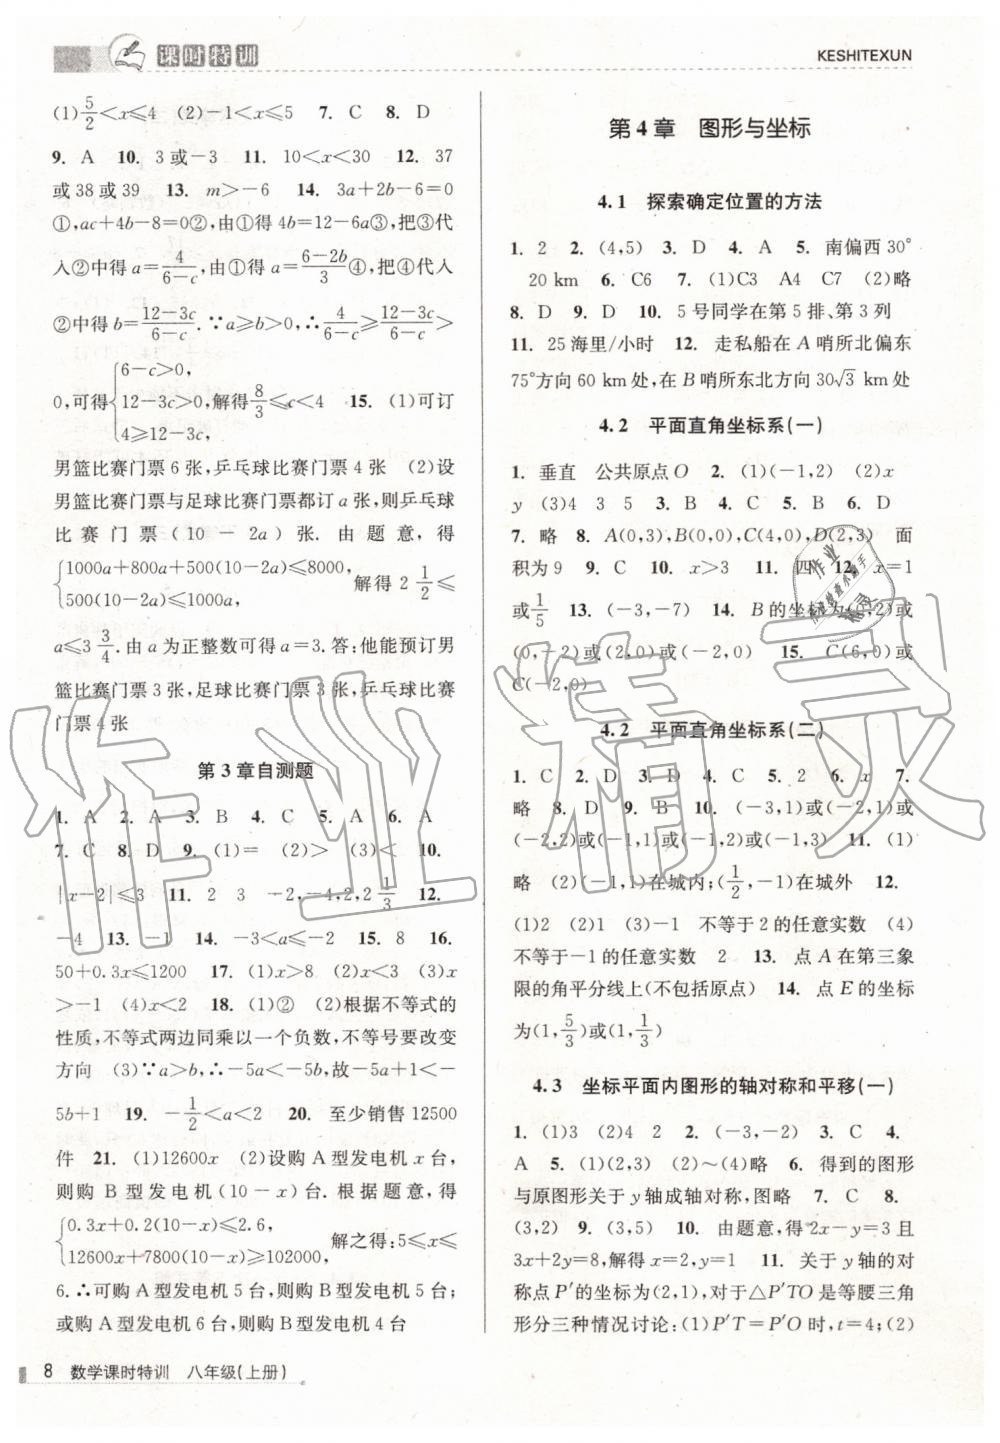 课时特训
KESHITEXUN
(1)5/2<x≤4 (2)-1<x≤5 7. C 8. D
9. A 10. 3或-3 11. 10<x<30 12. 37
或38或39 13. m>-6 14. 3a+2b-6=0
①,ac+4b-8=0②,由①得4b=12-6a③,把③代
入②中得a=4/(6-c),由①得a=(6-2b)/3④,把④代入
②中得b=(12-3c)/(6-c).∵a≥b>0,∴4/(6-c)≥(12-3c)/(6-c)>
0,可得{6-c>0, 12-3c>0, 4≥12-3c, 解得8/3≤c<4 15. (1)可订
男篮比赛门票6张,乒乓球比赛门票4张 (2)设
男篮比赛门票与足球比赛门票都订a张,则乒乓球
比赛门票(10-2a)张.由题意,得
{1000a+800a+500(10-2a)≤8000, 500(10-2a)≤1000a, 解得2 1/2≤
a≤3 3/4.由a为正整数可得a=3.答:他能预订男
篮比赛门票3张,足球比赛门票3张,乒乓球比赛
门票4张
第3章自测题
1. A 2. A 3. B 4. C 5. A 6. A
7. C 8. D 9. (1)= (2)> (3)< 10.
|x-2|≤3 11. 2 3 -2,-4,2,2 1/3 12.
-4 13. -1 14. -3<a≤-2 15. 8 16.
50+0.3x≤1200 17. (1)x>8 (2)x<4 (3)x
>-1 (4)x<2 18. (1)② (2)根据不等式的
性质,不等式两边同乘以一个负数,不等号要改变
方向 (3)∵a>b,∴-5a<-5b,故-5a+1<-
5b+1 19. -1/2<a<2 20. 至少销售12500
件 21. (1)12600x (2)设购A型发电机x台,
则购B型发电机(10-x)台.根据题意,得
{0.3x+0.2(10-x)≤2.6, 12600x+7800(10-x)≥102000, 解之得:5≤x≤
6.∴可购A型发电机5台,则购B型发电机5台;
或购A型发电机6台,则购B型发电机4台
第4章 图形与坐标
4.1 探索确定位置的方法
1. 2 2. (4,5) 3. D 4. A 5. 南偏西30°
20 km 6. C6 7. (1)C3 A4 C7 (2)略
8. D 9. D 10. 5号同学在第5排、第3列
11. 25海里/小时 12. 走私船在A哨所北偏东
75°方向60 km处,在B哨所东北方向30√3 km处
4.2 平面直角坐标系(一)
1. 垂直 公共原点O 2. (1)(-1,2) (2)x
y (3)4 3 5 3. B 4. C 5. B 6. D
7. 略 8. A(0,3),B(0,0),C(4,0),D(2,3) 面
积为9 9. C 10. x>3 11. 四 12. x=1
或1/5 13. (-3,-7) 14. B的坐标为(0,2)或
(0,-2)或(2,0)或(-2,0) 15. C(6,0)或
C(-2,0)
4.2 平面直角坐标系(二)
1. C 2. D 3. D 4. C 5. 2 6. x 7.
略 8. D 9. B 10. (-3,1)或(-2,1)或
(-2,2)或(-1,1)或(-1,2)或(-1,3) 11. (1)
略 (2)(-1,1)在城内;(1/2,-1)在城外 12.
(1)2 (2)1 (3)-1 不等于2的任意实数 (4)
不等于-1的任意实数 2 13. 点A在第三象
限的角平分线上(不包括原点) 14. 点E的坐标
为(1,5/3)或(1,1/3)
4.3 坐标平面内图形的轴对称和平移(一)
1. (1)3 (2)4 2 2. (-3,-2) 3. C 4.
A 5. (1)(2,3) (2)~(4)略 6. 得到的图形
与原图形关于y轴成轴对称,图略 7. C 8.
(3,2) 9. (3,5) 10. 由题意,得2x-y=3且
3x+2y=8,解得x=2,y=1 11. 关于y轴的对
称点P′的坐标为(2,1),对于△P′TO是等腰三角
形分三种情况讨论:(1)P′T=P′O时,t=4;(2)
8 数学课时特训 八年级(上册)
作业精灵